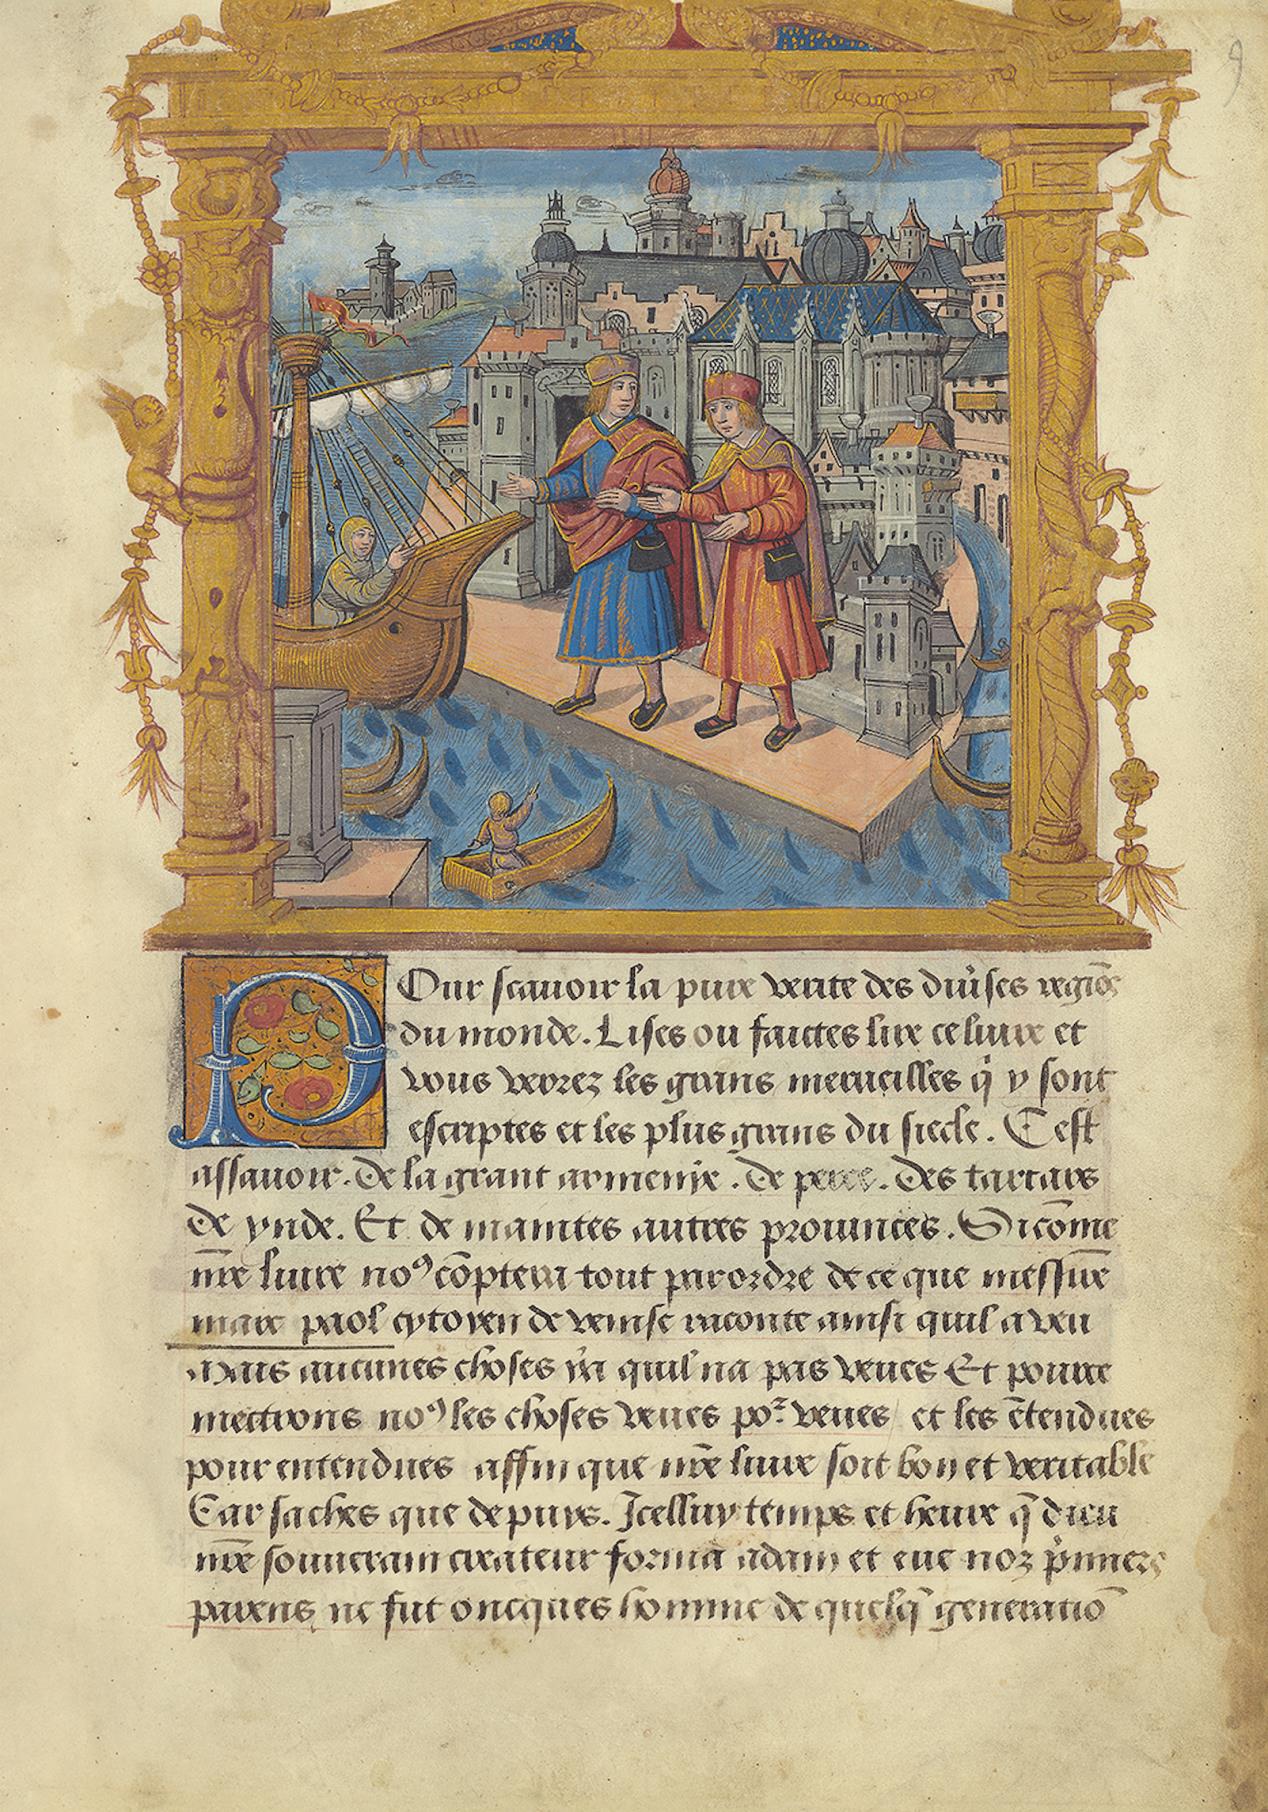 POur scauoir la pure verite des diu'ses regiōs
du monde. Lises ou faictes lire ce liure et
vous verrez les grans merueilles q̇ y sont
escriptes et les plus grans du siecle. Cest
assauoir. De la grant armenie. De perce. Des tartars
De ynde. Et de maintes autres prouinces. Si cōme
nr̄e liure noꝰ cōptera tout par ordre de ce que messire
marc paol cytoyen de venise raconte ainsi quil a veu
Mais aucunes choses y a quil na pas veues Et pource
mectrons noꝰ les choses veues por veues et les ētendues
pour entendues affin que nr̄e liure soit bon et veritable
Car saches que depuys. Jcelluy temps et heure q̄ dieu
nr̄e souuerain createur forma adam et eue noz p̍miers
parens ne fut oncques homme de quelq̄ generatiō